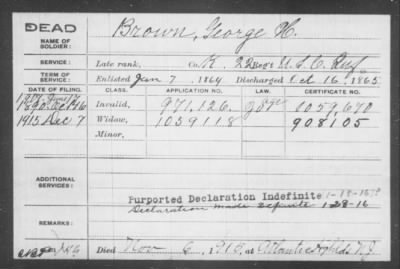 DEAD
NAME OF SOLDIER: Brown, George H.
SERVICE: Late rank, Co. K, 22 Reg't U.S.C. Inf
TERM OF SERVICE: Enlisted Jan 7, 1864 Discharged Oct 16, 1865
DATE OF FILING. CLASS. APPLICATION NO. LAW. CERTIFICATE NO.
Invalid, 971,126. 1059,670
1915 Dec 7 Widow, 1059118 908105
Minor,
ADDITIONAL SERVICES:
Purported Declaration Indefinite 1-18-16
Declaration made definite 1-28-16
REMARKS:
Died Nov 6, 1915, at Atlantic N.J.